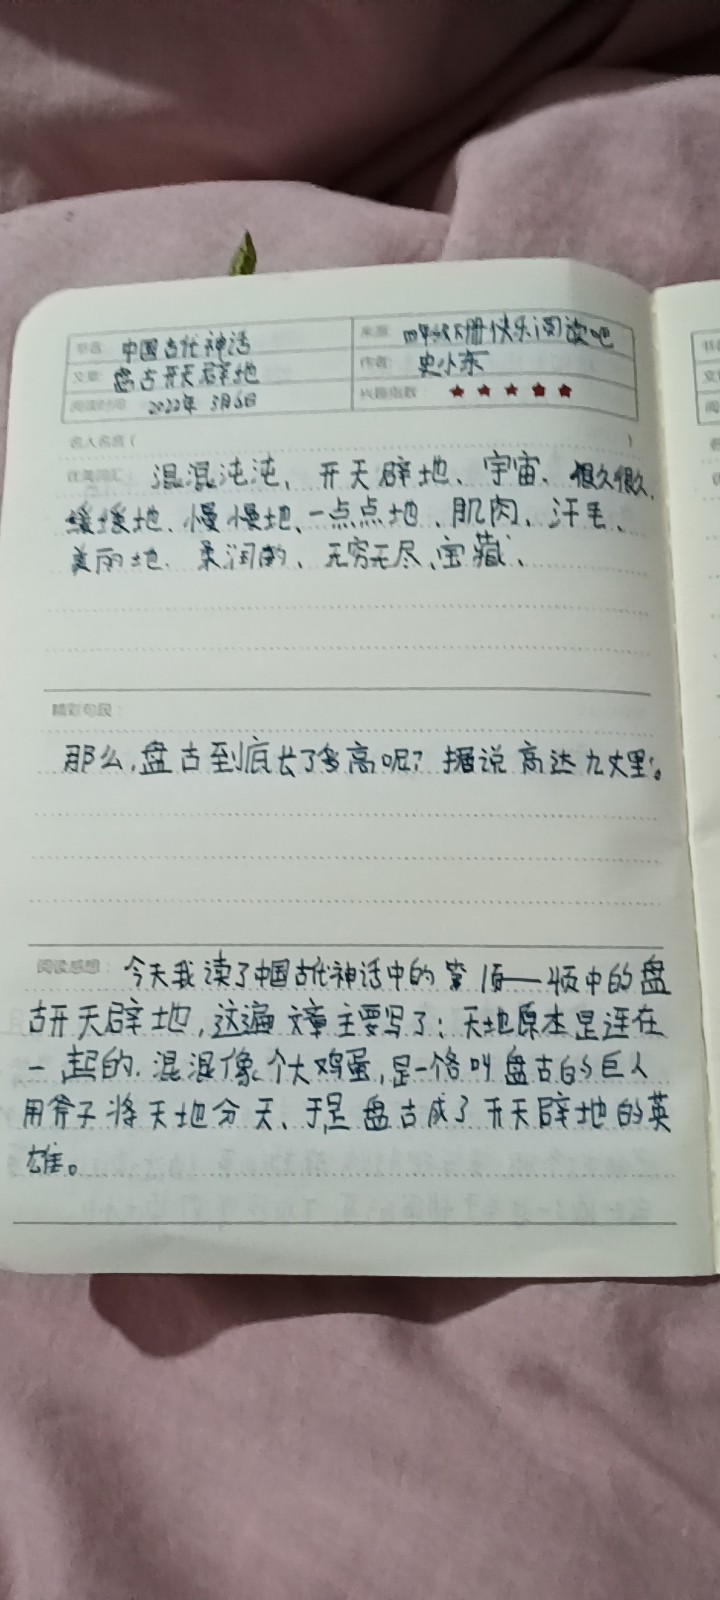 书名： 中国古代神话
来源： 四年级下册快乐阅读吧
文章： 盘古开天辟地
作者： 史小东
阅读时间： 2022年 3月6日
兴趣指数： ★ ★ ★ ★ ★
名人名言（ ）
优美词汇： 混混沌沌、开天辟地、宇宙、很久很久、
缓缓地、慢慢地、一点点地、肌肉、汗毛、
美丽地、柔润的、无穷无尽、宝藏、
精彩句段：
那么，盘古到底长了多高呢？据说高达九丈里。
阅读感想： 今天我读了中国古代神话中的第1页——4页中的盘
古开天辟地，这遍文章主要写了：天地原本是连在
一起的，混混像个大鸡蛋，是一个叫盘古的巨人
用斧子将天地分天、于是盘古成了开天辟地的英
雄。